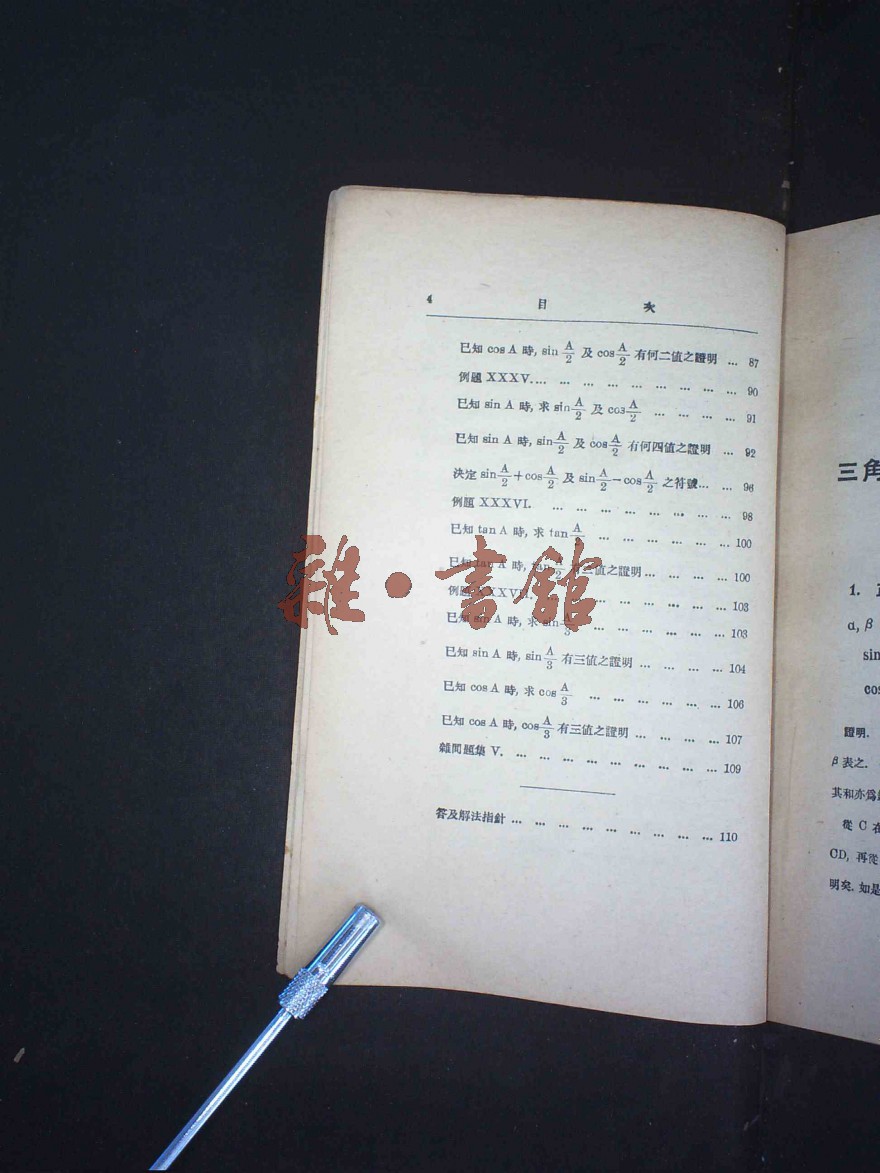 4 目 次
已知 cos A 時, sin A/2 及 cos A/2 有何二值之證明 … 87
例題 XXXV.… … … … … … … … … 90
已知 sin A 時, 求 sin A/2 及 cos A/2 … … … … 91
已知 sin A 時, sin A/2 及 cos A/2 有何四值之證明 … 92
決定 sin A/2 + cos A/2 及 sin A/2 − cos A/2 之符號… … 96
例題 XXXVI. … … … … … … … … 98
已知 tan A 時, 求 tan A/2 … … … … … … 100
已知 tan A 時, tan A/2 有二值之證明 … … … … 100
例題 XXXVII. … … … … … … 103
已知 sin A 時, 求 sin A/3 … … … … … … 103
已知 sin A 時, sin A/3 有三值之證明 … … … … 104
已知 cos A 時, 求 cos A/3 … … … … … … 106
已知 cos A 時, cos A/3 有三值之證明 … … … … 107
雜問題集 V. … … … … … … … … … 109
答及解法指針 … … … … … … … … … 110
雜·書館
三角
1.
α, β
sin
cos
證明.
β 表之.
其和亦爲
從 C 在
CD, 再從
明矣. 如是